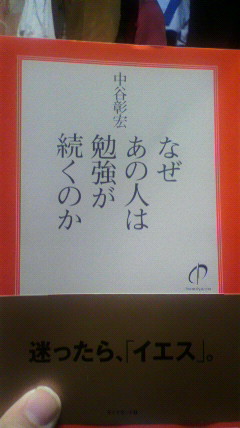 中谷彰宏
なぜ
あの人は
勉強が
続くのか
迷ったら、「イエス」。